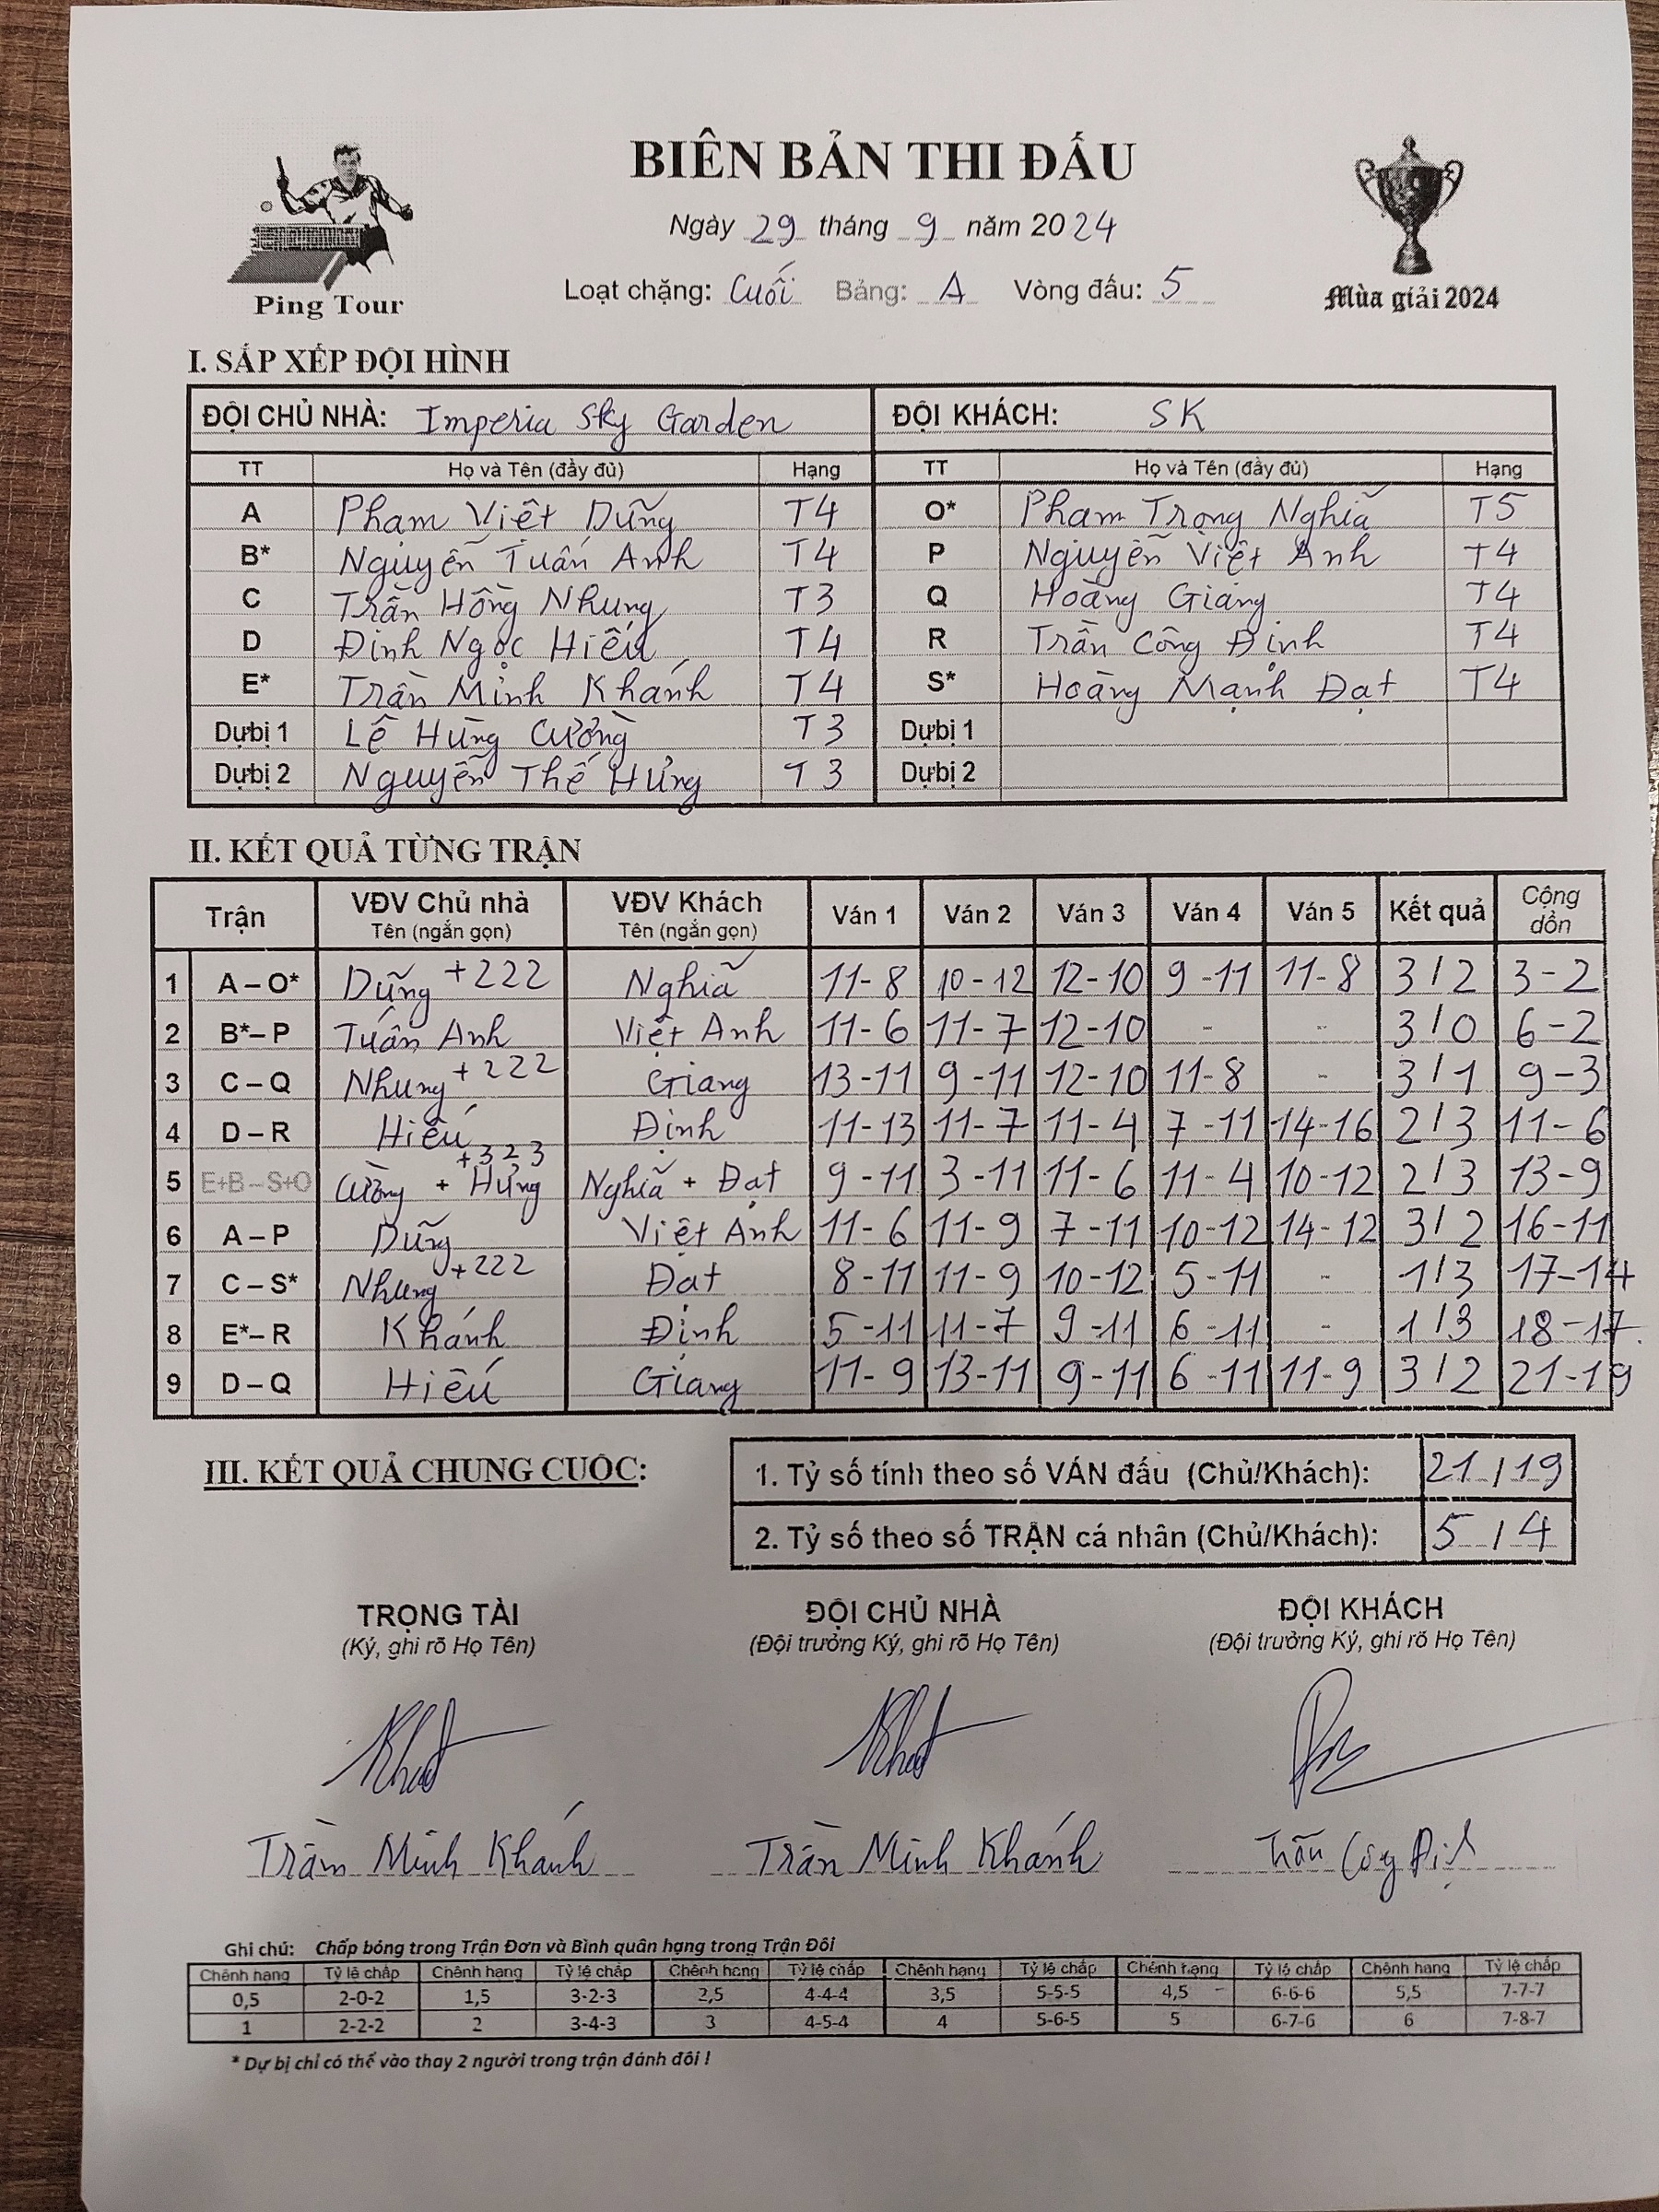 BIÊN BẢN THI ĐẤU
Ngày 29 tháng 9 năm 2024
Loạt chặng: Cuối Bảng: A Vòng đấu: 5
Ping Tour
Mùa giải 2024
I. SẮP XẾP ĐỘI HÌNH
ĐỘI CHỦ NHÀ: Imperia Sky Garden ĐỘI KHÁCH: SK
TT Họ và Tên (đầy đủ) Hạng TT Họ và Tên (đầy đủ) Hạng
A Phạm Việt Dũng T4 O* Phạm Trọng Nghĩa T5
B* Nguyễn Tuấn Anh T4 P Nguyễn Việt Anh T4
C Trần Hồng Nhung T3 Q Hoàng Giang T4
D Đinh Ngọc Hiếu T4 R Trần Công Định T4
E* Trần Minh Khánh T4 S* Hoàng Mạnh Đạt T4
Dự bị 1 Lê Hùng Cường T3 Dự bị 1
Dự bị 2 Nguyễn Thế Hưng T3 Dự bị 2
II. KẾT QUẢ TỪNG TRẬN
Trận VĐV Chủ nhà VĐV Khách Ván 1 Ván 2 Ván 3 Ván 4 Ván 5 Kết quả Cộng dồn
Tên (ngắn gọn) Tên (ngắn gọn)
1 A – O* Dũng +222 Nghĩa 11-8 10-12 12-10 9-11 11-8 3/2 3-2
2 B* – P Tuấn Anh Việt Anh 11-6 11-7 12-10 - - 3/0 6-2
3 C – Q Nhung +222 Giang 13-11 9-11 12-10 11-8 - 3/1 9-3
4 D – R Hiếu Định 11-13 11-7 11-4 7-11 14-16 2/3 11-6
5 E+B – S+O Cường + Hưng +323 Nghĩa + Đạt 9-11 3-11 11-6 11-4 10-12 2/3 13-9
6 A – P Dũng Việt Anh 11-6 11-9 7-11 10-12 14-12 3/2 16-11
7 C – S* Nhung +222 Đạt 8-11 11-9 10-12 5-11 - 1/3 17-14
8 E* – R Khánh Định 5-11 11-7 9-11 6-11 - 1/3 18-17
9 D – Q Hiếu Giang 11-9 13-11 9-11 6-11 11-9 3/2 21-19
III. KẾT QUẢ CHUNG CUỘC:
1. Tỷ số tính theo số VÁN đấu (Chủ/Khách): 21/19
2. Tỷ số theo số TRẬN cá nhân (Chủ/Khách): 5/4
TRỌNG TÀI ĐỘI CHỦ NHÀ ĐỘI KHÁCH
(Ký, ghi rõ Họ Tên) (Đội trưởng Ký, ghi rõ Họ Tên) (Đội trưởng Ký, ghi rõ Họ Tên)
Trần Minh Khánh Trần Minh Khánh Trần Công Định
Ghi chú: Chấp bóng trong Trận Đơn và Bình quân hạng trong Trận Đôi
Chênh hạng Tỷ lệ chấp Chênh hạng Tỷ lệ chấp Chênh hạng Tỷ lệ chấp Chênh hạng Tỷ lệ chấp Chênh hạng Tỷ lệ chấp Chênh hạng Tỷ lệ chấp
0,5 2-0-2 1,5 3-2-3 2,5 4-4-4 3,5 5-5-5 4,5 6-6-6 5,5 7-7-7
1 2-2-2 2 3-4-3 3 4-5-4 4 5-6-5 5 6-7-6 6 7-8-7
* Dự bị chỉ có thể vào thay 2 người trong trận đánh đôi !